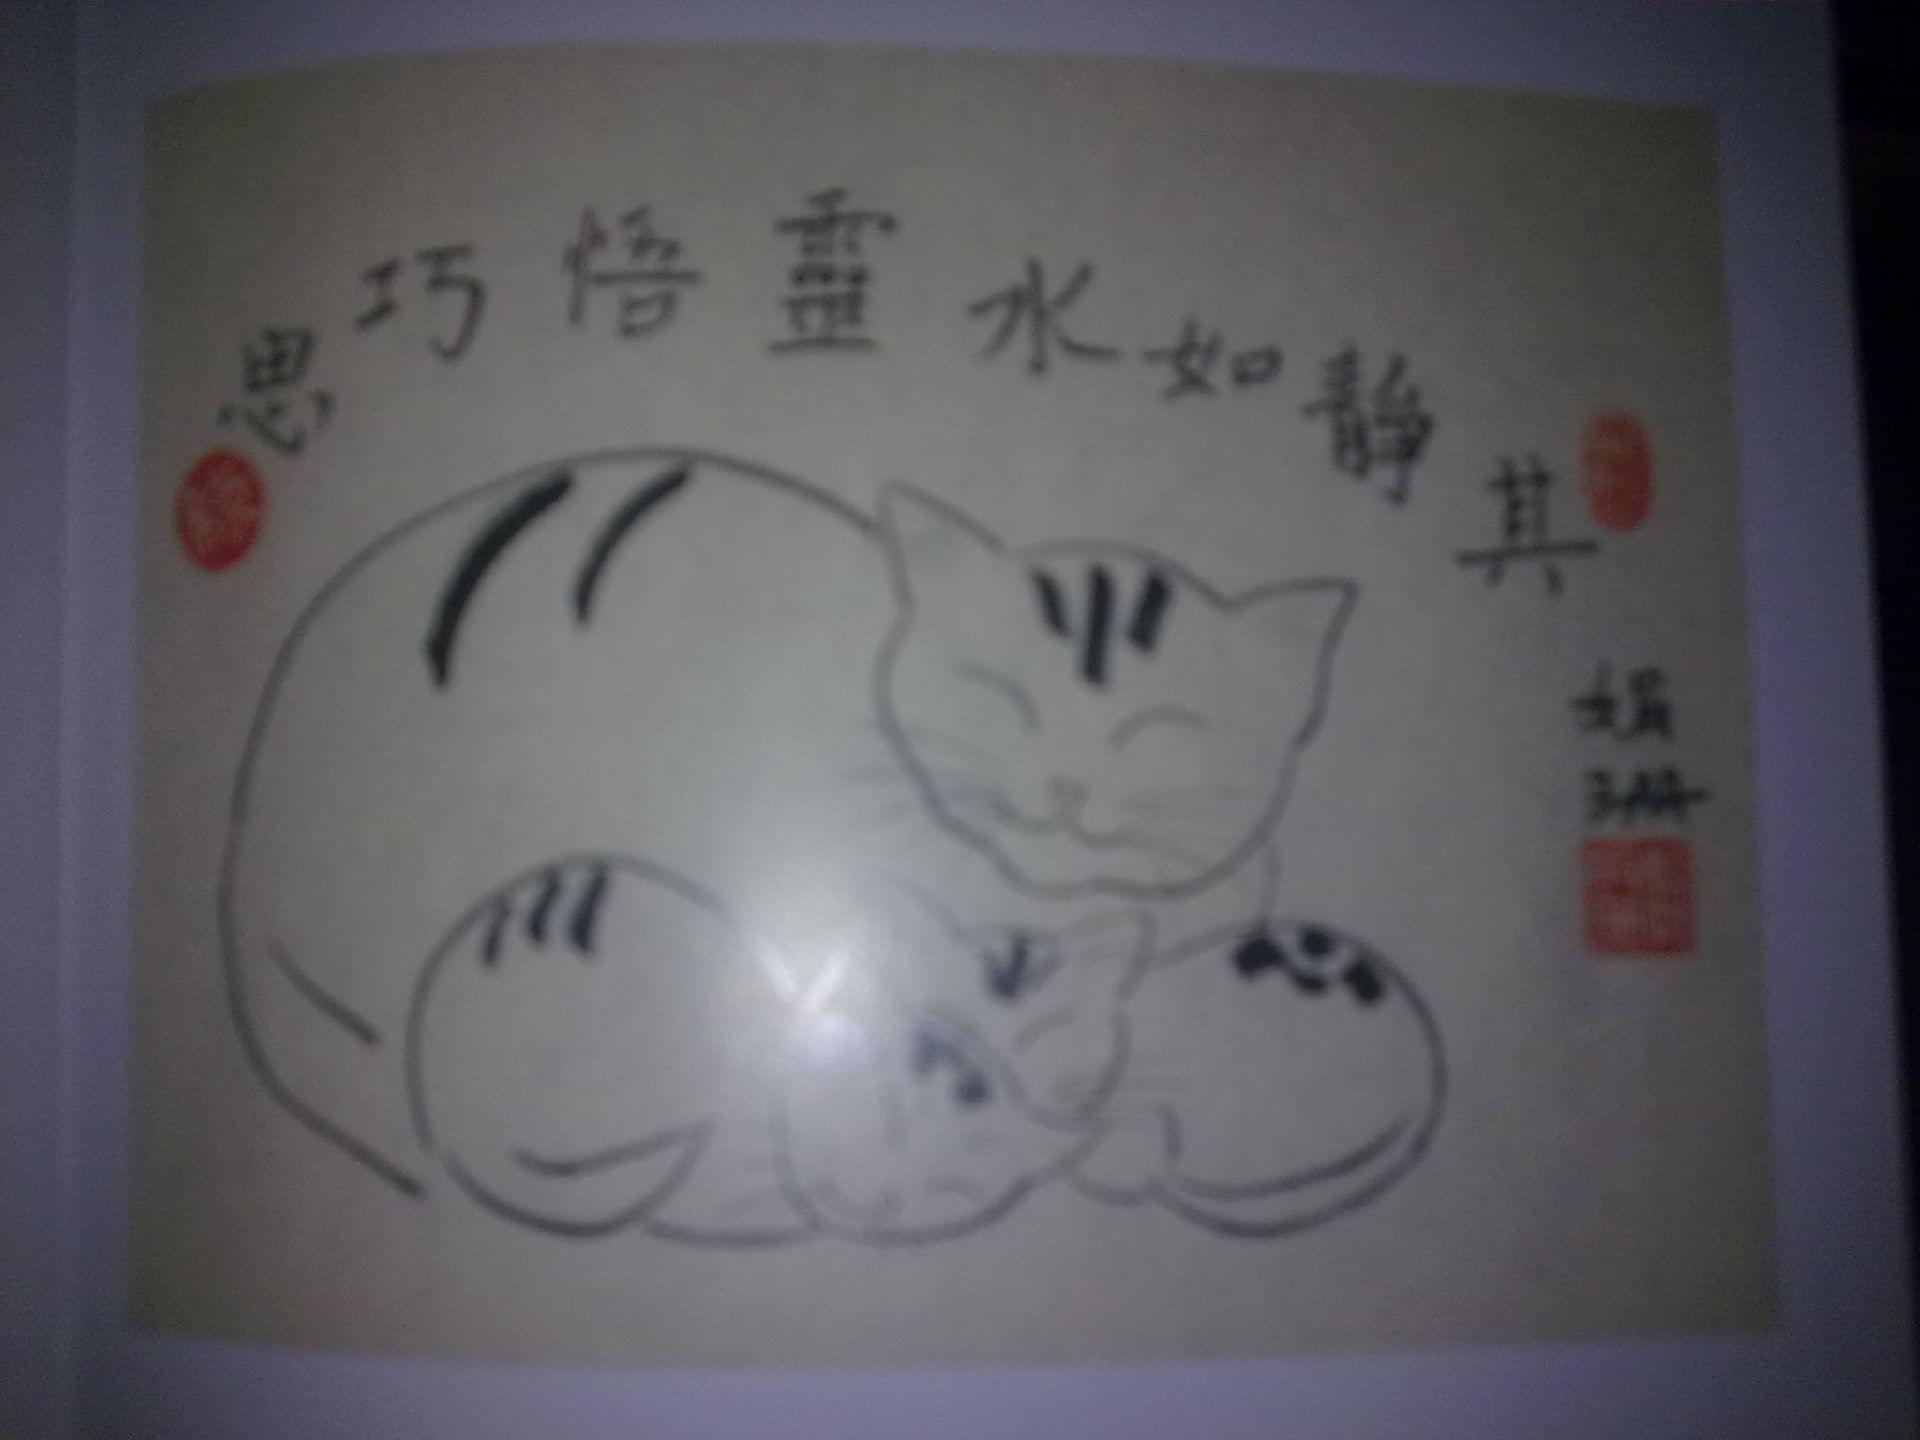 其静如水靈悟巧思
娟珊